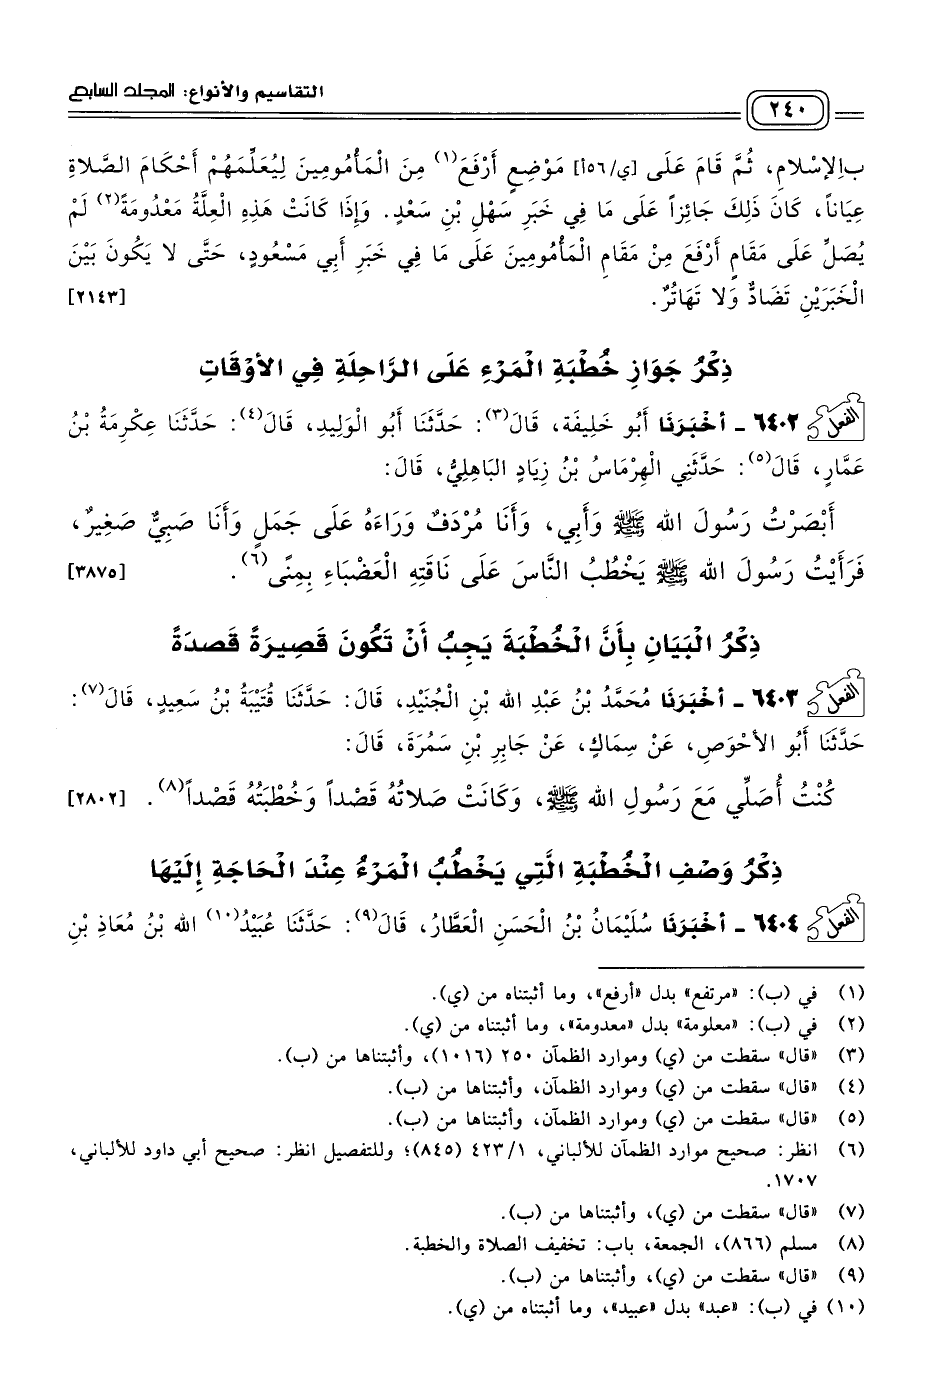 التقاسيم والأنواع: المجلد السابع
٢٤٠
بِالإِسْلَامِ، ثُمَّ قَامَ عَلَى [ي/٥٦أ] مَوْضِعٍ أَرْفَعَ(١) مِنَ الْمَأْمُومِينَ لِيُعَلِّمَهُمْ أَحْكَامَ الصَّلَاةِ
عِيَاناً، كَانَ ذَلِكَ جَائِزاً عَلَى مَا فِي خَبَرِ سَهْلِ بْنِ سَعْدٍ. وَإِذَا كَانَتْ هَذِهِ الْعِلَّةُ مَعْدُومَةً(٢) لَمْ
يُصَلِّ عَلَى مَقَامٍ أَرْفَعَ مِنْ مَقَامِ الْمَأْمُومِينَ عَلَى مَا فِي خَبَرِ أَبِي مَسْعُودٍ، حَتَّى لا يَكُونَ بَيْنَ
الْخَبَرَيْنِ تَضَادٌّ وَلا تَهَاتُرٌ. [٢١٤٣]
ذِكْرُ جَوَازِ خُطْبَةِ الْمَرْءِ عَلَى الرَّاحِلَةِ فِي الأَوْقَاتِ
الفعل ٦٤٠٢ ـ أَخْبَرَنَا أَبُو خَلِيفَة، قَالَ(٣): حَدَّثَنَا أَبُو الْوَلِيدِ، قَالَ(٤): حَدَّثَنَا عِكْرِمَةُ بْنُ
عَمَّارٍ، قَالَ(٥): حَدَّثَنِي الْهِرْمَاسُ بْنُ زِيَادٍ الْبَاهِلِيُّ، قَالَ:
أَبْصَرْتُ رَسُولَ الله ﷺ وَأَبِي، وَأَنَا مُرْدَفٌ وَرَاءَهُ عَلَى جَمَلٍ وَأَنَا صَبِيٌّ صَغِيرٌ،
فَرَأَيْتُ رَسُولَ الله ﷺ يَخْطُبُ النَّاسَ عَلَى نَاقَتِهِ الْعَضْبَاءِ بِمِنًى(٦). [٣٨٧٥]
ذِكْرُ الْبَيَانِ بِأَنَّ الْخُطْبَةَ يَجِبُ أَنْ تَكُونَ قَصِيرَةً قَصدَةً
الفعل ٦٤٠٣ ـ أَخْبَرَنَا مُحَمَّدُ بْنُ عَبْدِ الله بْنِ الْجُنَيْدِ، قَالَ: حَدَّثَنَا قُتَيْبَةُ بْنُ سَعِيدٍ، قَالَ(٧):
حَدَّثَنَا أَبُو الأَحْوَصِ، عَنْ سِمَاكٍ، عَنْ جَابِرِ بْنِ سَمُرَةَ، قَالَ:
كُنْتُ أُصَلِّي مَعَ رَسُولِ الله ﷺ، وَكَانَتْ صَلاتُهُ قَصْداً وَخُطْبَتُهُ قَصْداً(٨). [٢٨٠٢]
ذِكْرُ وَصْفِ الْخُطْبَةِ الَّتِي يَخْطُبُ الْمَرْءُ عِنْدَ الْحَاجَةِ إِلَيْهَا
الفعل ٦٤٠٤ ـ أَخْبَرَنَا سُلَيْمَانُ بْنُ الْحَسَنِ الْعَطَّارُ، قَالَ(٩): حَدَّثَنَا عُبَيْدُ(١٠) الله بْنُ مُعَاذِ بْنِ
(١) في (ب): «مرتفع» بدل «أرفع»، وما أثبتناه من (ي).
(٢) في (ب): «معلومة» بدل «معدومة»، وما أثبتناه من (ي).
(٣) «قال» سقطت من (ي) وموارد الظمآن ٢٥٠ (١٠١٦)، وأثبتناها من (ب).
(٤) «قال» سقطت من (ي) وموارد الظمآن، وأثبتناها من (ب).
(٥) «قال» سقطت من (ي) وموارد الظمآن، وأثبتناها من (ب).
(٦) انظر: صحيح موارد الظمآن للألباني، ٤٢٣/١ (٨٤٥)؛ وللتفصيل انظر: صحيح أبي داود للألباني،
١٧٠٧.
(٧) «قال» سقطت من (ي)، وأثبتناها من (ب).
(٨) مسلم (٨٦٦)، الجمعة، باب: تخفيف الصلاة والخطبة.
(٩) «قال» سقطت من (ي)، وأثبتناها من (ب).
(١٠) في (ب): «عبد» بدل «عبيد»، وما أثبتناه من (ي).